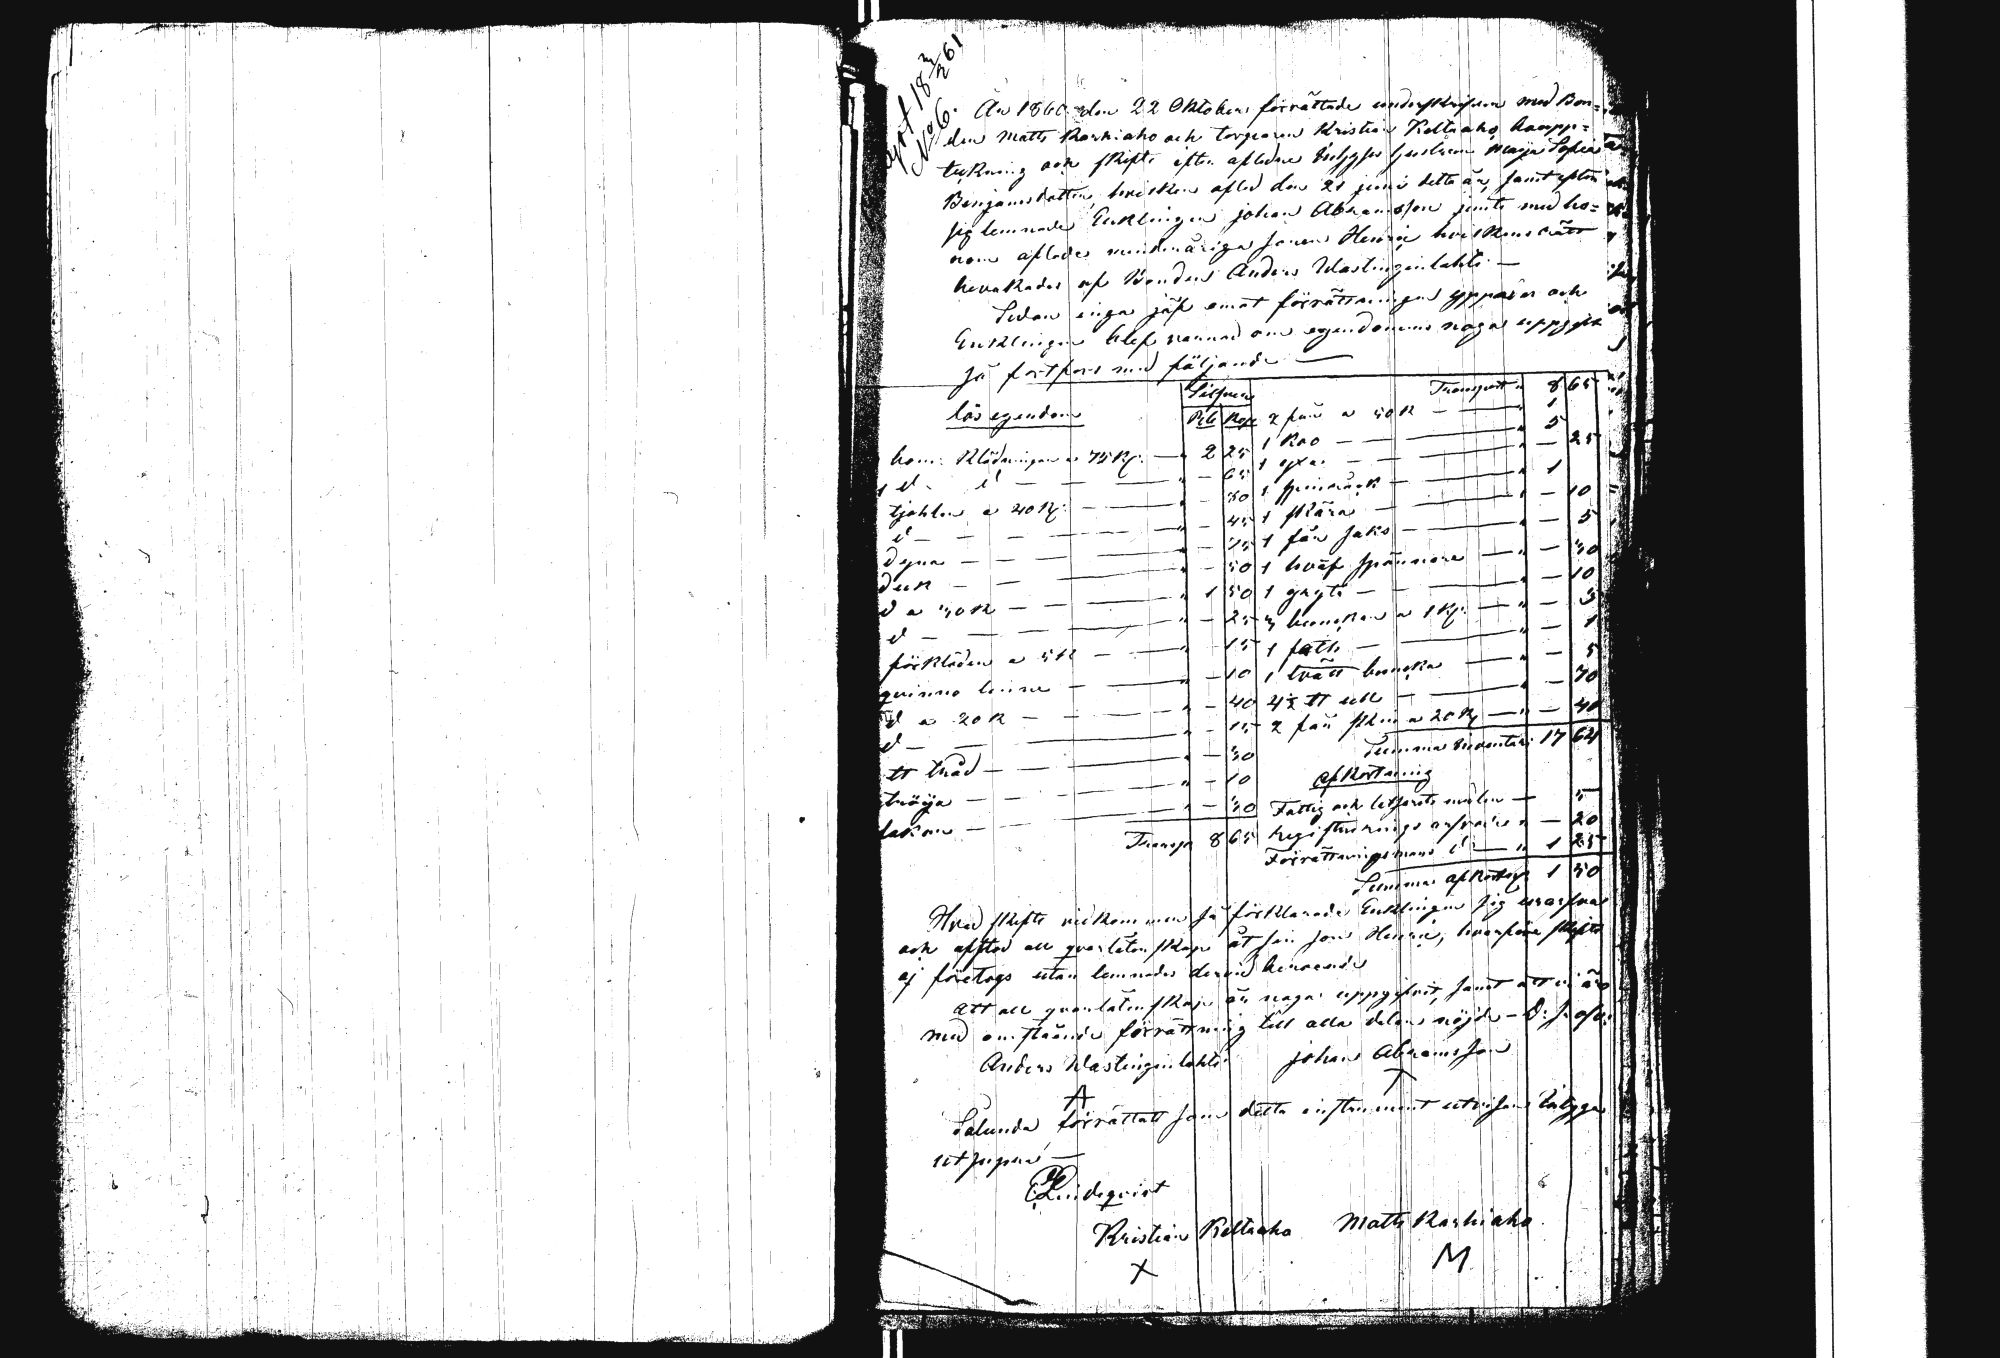 18 61
No 6.
År 1860 den 22 Oktober förrättade undertkrifven med Bon=
den Matts Karhiaho och torparen Kristian Keltaaho boupp=
tekning och skifte efter afledne Inhyses hustrun Maija Sofia
Benjamsdotter, hvilken afled den 21 juni detta år, samt efter
sig lemnade Enklingen johan Abramsson jemte med ho=
nom aflade minderåriga sonen Henric hvilkens rätt
bevakades af Bonden Anders Wastinginlahti —
Sedan inga jäf emot förrättningen yppades och
Enklingen blef varnad om egendomens noga uppgift
så fortfors med följande —
lös egendom
Silfver
Rbl Kop
Klädningar a 75 Kp. — 2 25
d. d — " — 65
a 40 Kp. — " — 80
d — " — 45
dyna — " — 75
duk — " — 50
d a 30 K — " 1 50
d — " — 25
förkläden a 5 K — " — 15
qvinno linne — " — 10
d a 20 K — " — 40
d — " — 15
tt tråd — " — 30
tröija — " — 10
lakan — " — 30
Transp 8 65
Transport " 8 65
2 får a 50 K — " 1
1 Ko — " 5
1 yxa — " — 25
1 spinråck — " 1
1 skära — " — 10
1 får saks — " — 5
1 häf spännare — " — 30
1 gryta — " — 10
3 a 1 Kp. — " — 3
1 fatt — " — 1
1 tvätt — " — 5
4½ tt ull — " — 70
2 får skin a 20 Kp — " — 40
Summa Inventari 17 64
afkortning
Fattig och — 5
Registrerings arfvode " — 20
Förrättningsmans d — " 1 25
Summa afkortng 1 50
Hvad skifte vidkommer så förklarade Enklingen sig urarfva
och afstod all qvarlåtenskap åt sin son Henric, hvarföre skifte
ej företogs utan lemnades dervid beroende
Att all qvarlåtenskap är noga uppgifvit, samt att vi äro
med omstående förrättning till alla delar nöjde —
Anders Wastinginlahti johan Abramsson
A T
Sålunda förrättatt som detta instrument utvisar betyga
utsupra —
Lindeqvist
Kristian Keltaaho Matts Karhiaho
X M